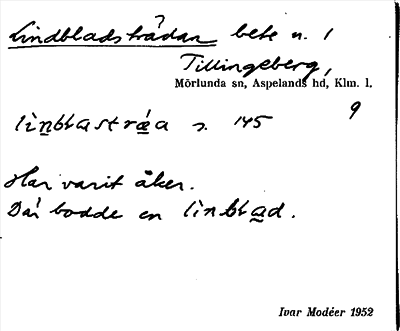 Lindbladstrådan bete n. 1
Tillingeberg,
Mörlunda sn, Aspelands hd, Klm. l.
9
lìnblastrǽa s. 145
Har varit åker.
Där bodde en lìnblad.
Ivar Modéer 1952